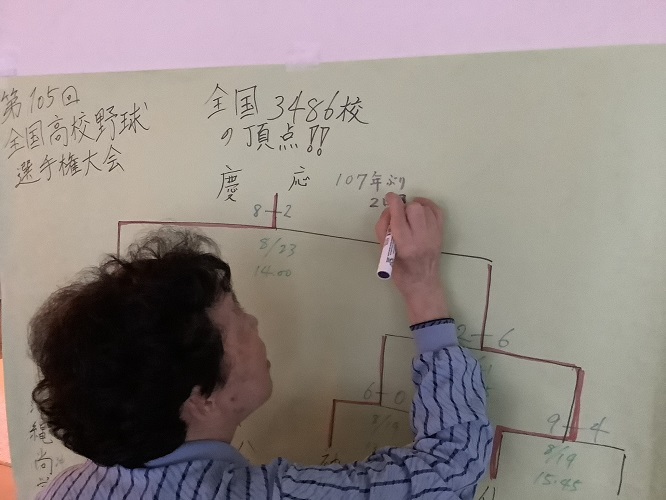 第105回
全国高校野球
選手権大会
全国3486校
の頂点!!
慶 応
107年ぶり
2
8-2
8/23
14:00
2-6
6-0
8/19
9-4
8/19
15:45
縄尚
八